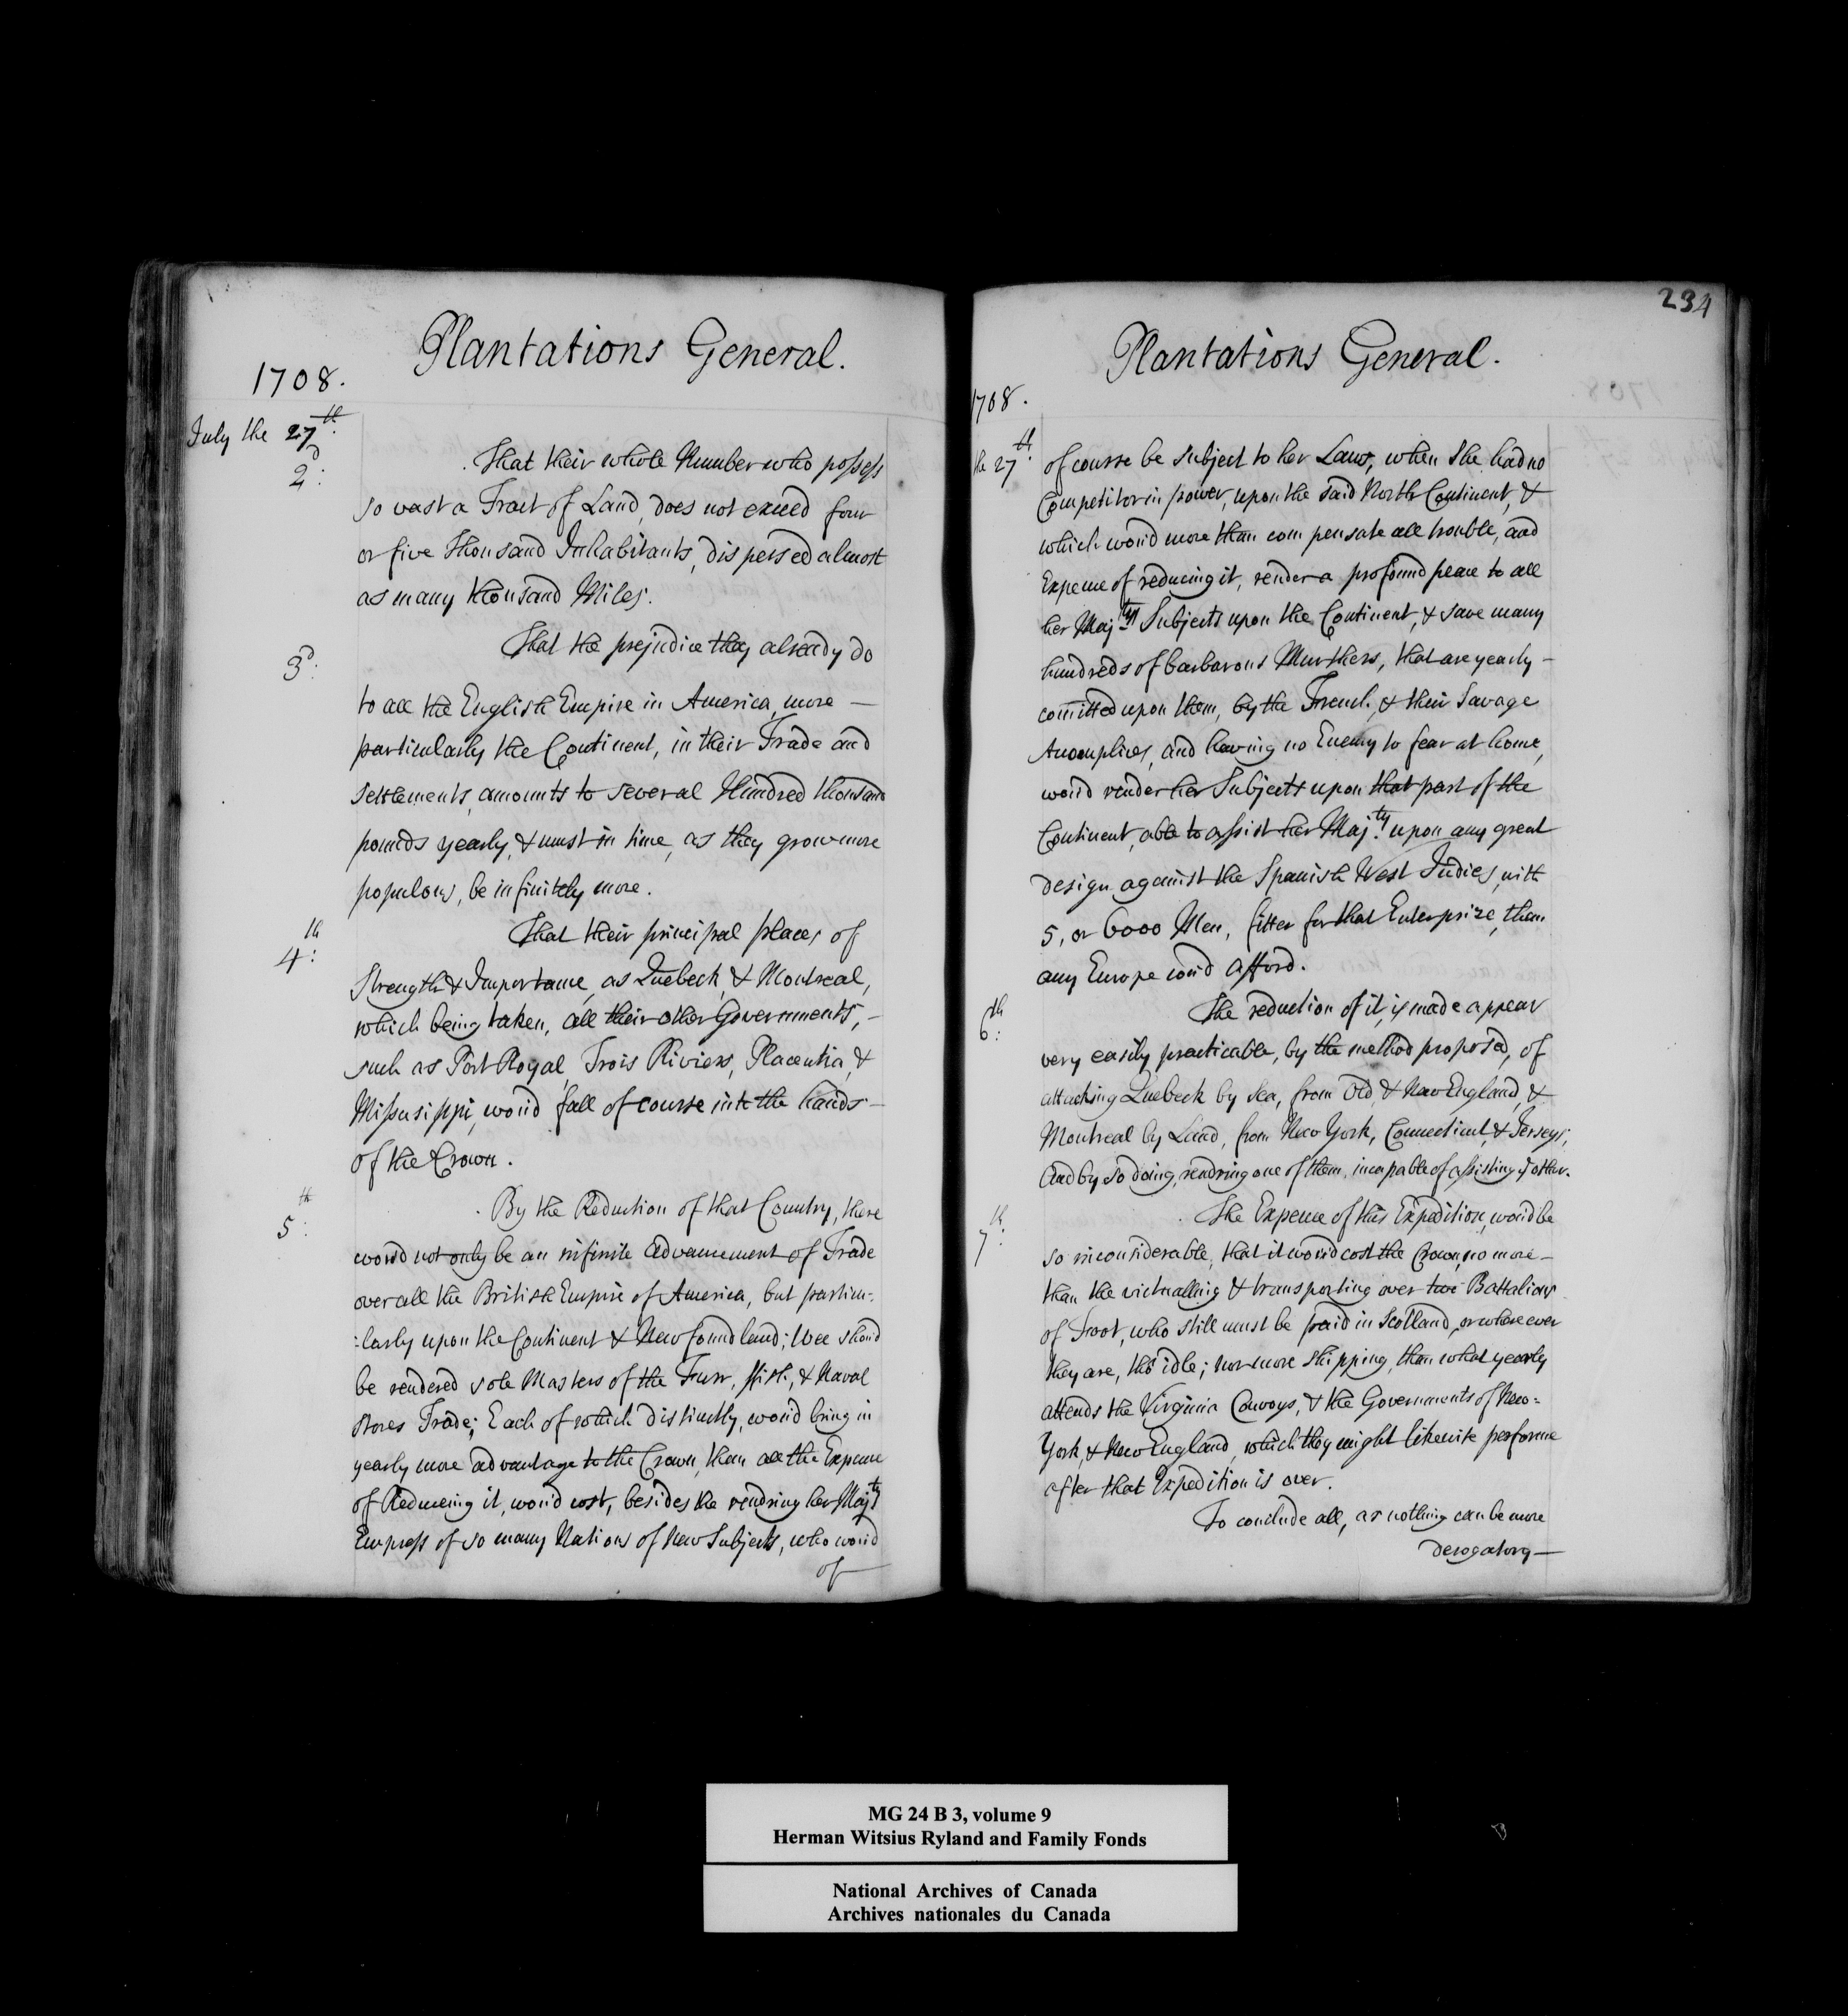 Plantations General.
1708.
July the 27th.
2d: That their whole Number who possess
so vast a Tract of Land, does not exceed four
or five thousand Inhabitants, dispersed almost
as many thousand Miles.
3d: That the prejudice they already do
to all the English Empire in America, more —
particularly the Continent, in their Trade and
settlements, amounts to several Hundred thousand
pounds yearly, & must in time, as they grow more
populous, be infinitely more.
4th: That their principal places of
Strength & Importance, as Quebeck, & Montreal,
which being taken, all their other Governments, –
such as Port Royal, Trois Rivieres, Placentia, &
Missasippi, would fall of course into the hands —
of the Crown.
5th: By the Reduction of that Country, there
would not only be an infinite advancement of Trade
over all the British Empire of America, but particu-
:larly upon the Continent & Newfoundland; Wee should
be rendered sole Masters of the Furr, ffish, & Naval
stores Trade; Each of which distinctly, would bring in
yearly more advantage to the Crown, than all the Expence
of Reduceing it, would cost, besides the rendring her Majty
Empress of so many Nations of New Subjects, who would
of —
234
Plantations General.
1708.
the 27th.
of course be subject to her Laws, when she had no
Competitor in power, upon the said North Continent, &
which would more than compensate all trouble, and
Expence of reducing it, render a profound peace to all
her Majtys Subjects upon the Continent, & save many
hundreds of barbarous Murthers, that are yearly –
comitted upon them, by the French, & their Savage
Accomplices, and having no Enemy to fear at home,
would render her Subjects upon that part of the
Continent, able to assist her Majty. upon any great
design against the Spanish West Indies, with
5, or 6000 Men, fitter for that Enterprize, than
any Europe could afford.
6th: The reduction of it, is made appear
very easily practicable, by the method propos'd, of
attacking Quebeck by Sea, from Old, & New England, &
Montreal by Land, from New York, Connecticut, & Jerseys;
And by so doing, rendring one of them, incapable of assisting ye other.
7th: The Expence of this Expedition, would be
so inconsiderable, that it would cost the Crown, no more –
than the victualling & transporting over two Battalions
of Foot, who still must be paid in Scotland, or where ever
they are, tho' idle; nor more shipping, than what yearly
attends the Virginia Convoys, & the Governments of New=
York, & New England, which they might likewise performe
after that Expedition is over.
To conclude all, as nothing can be more
derogatory —
MG 24 B 3, volume 9
Herman Witsius Ryland and Family Fonds
National Archives of Canada
Archives nationales du Canada